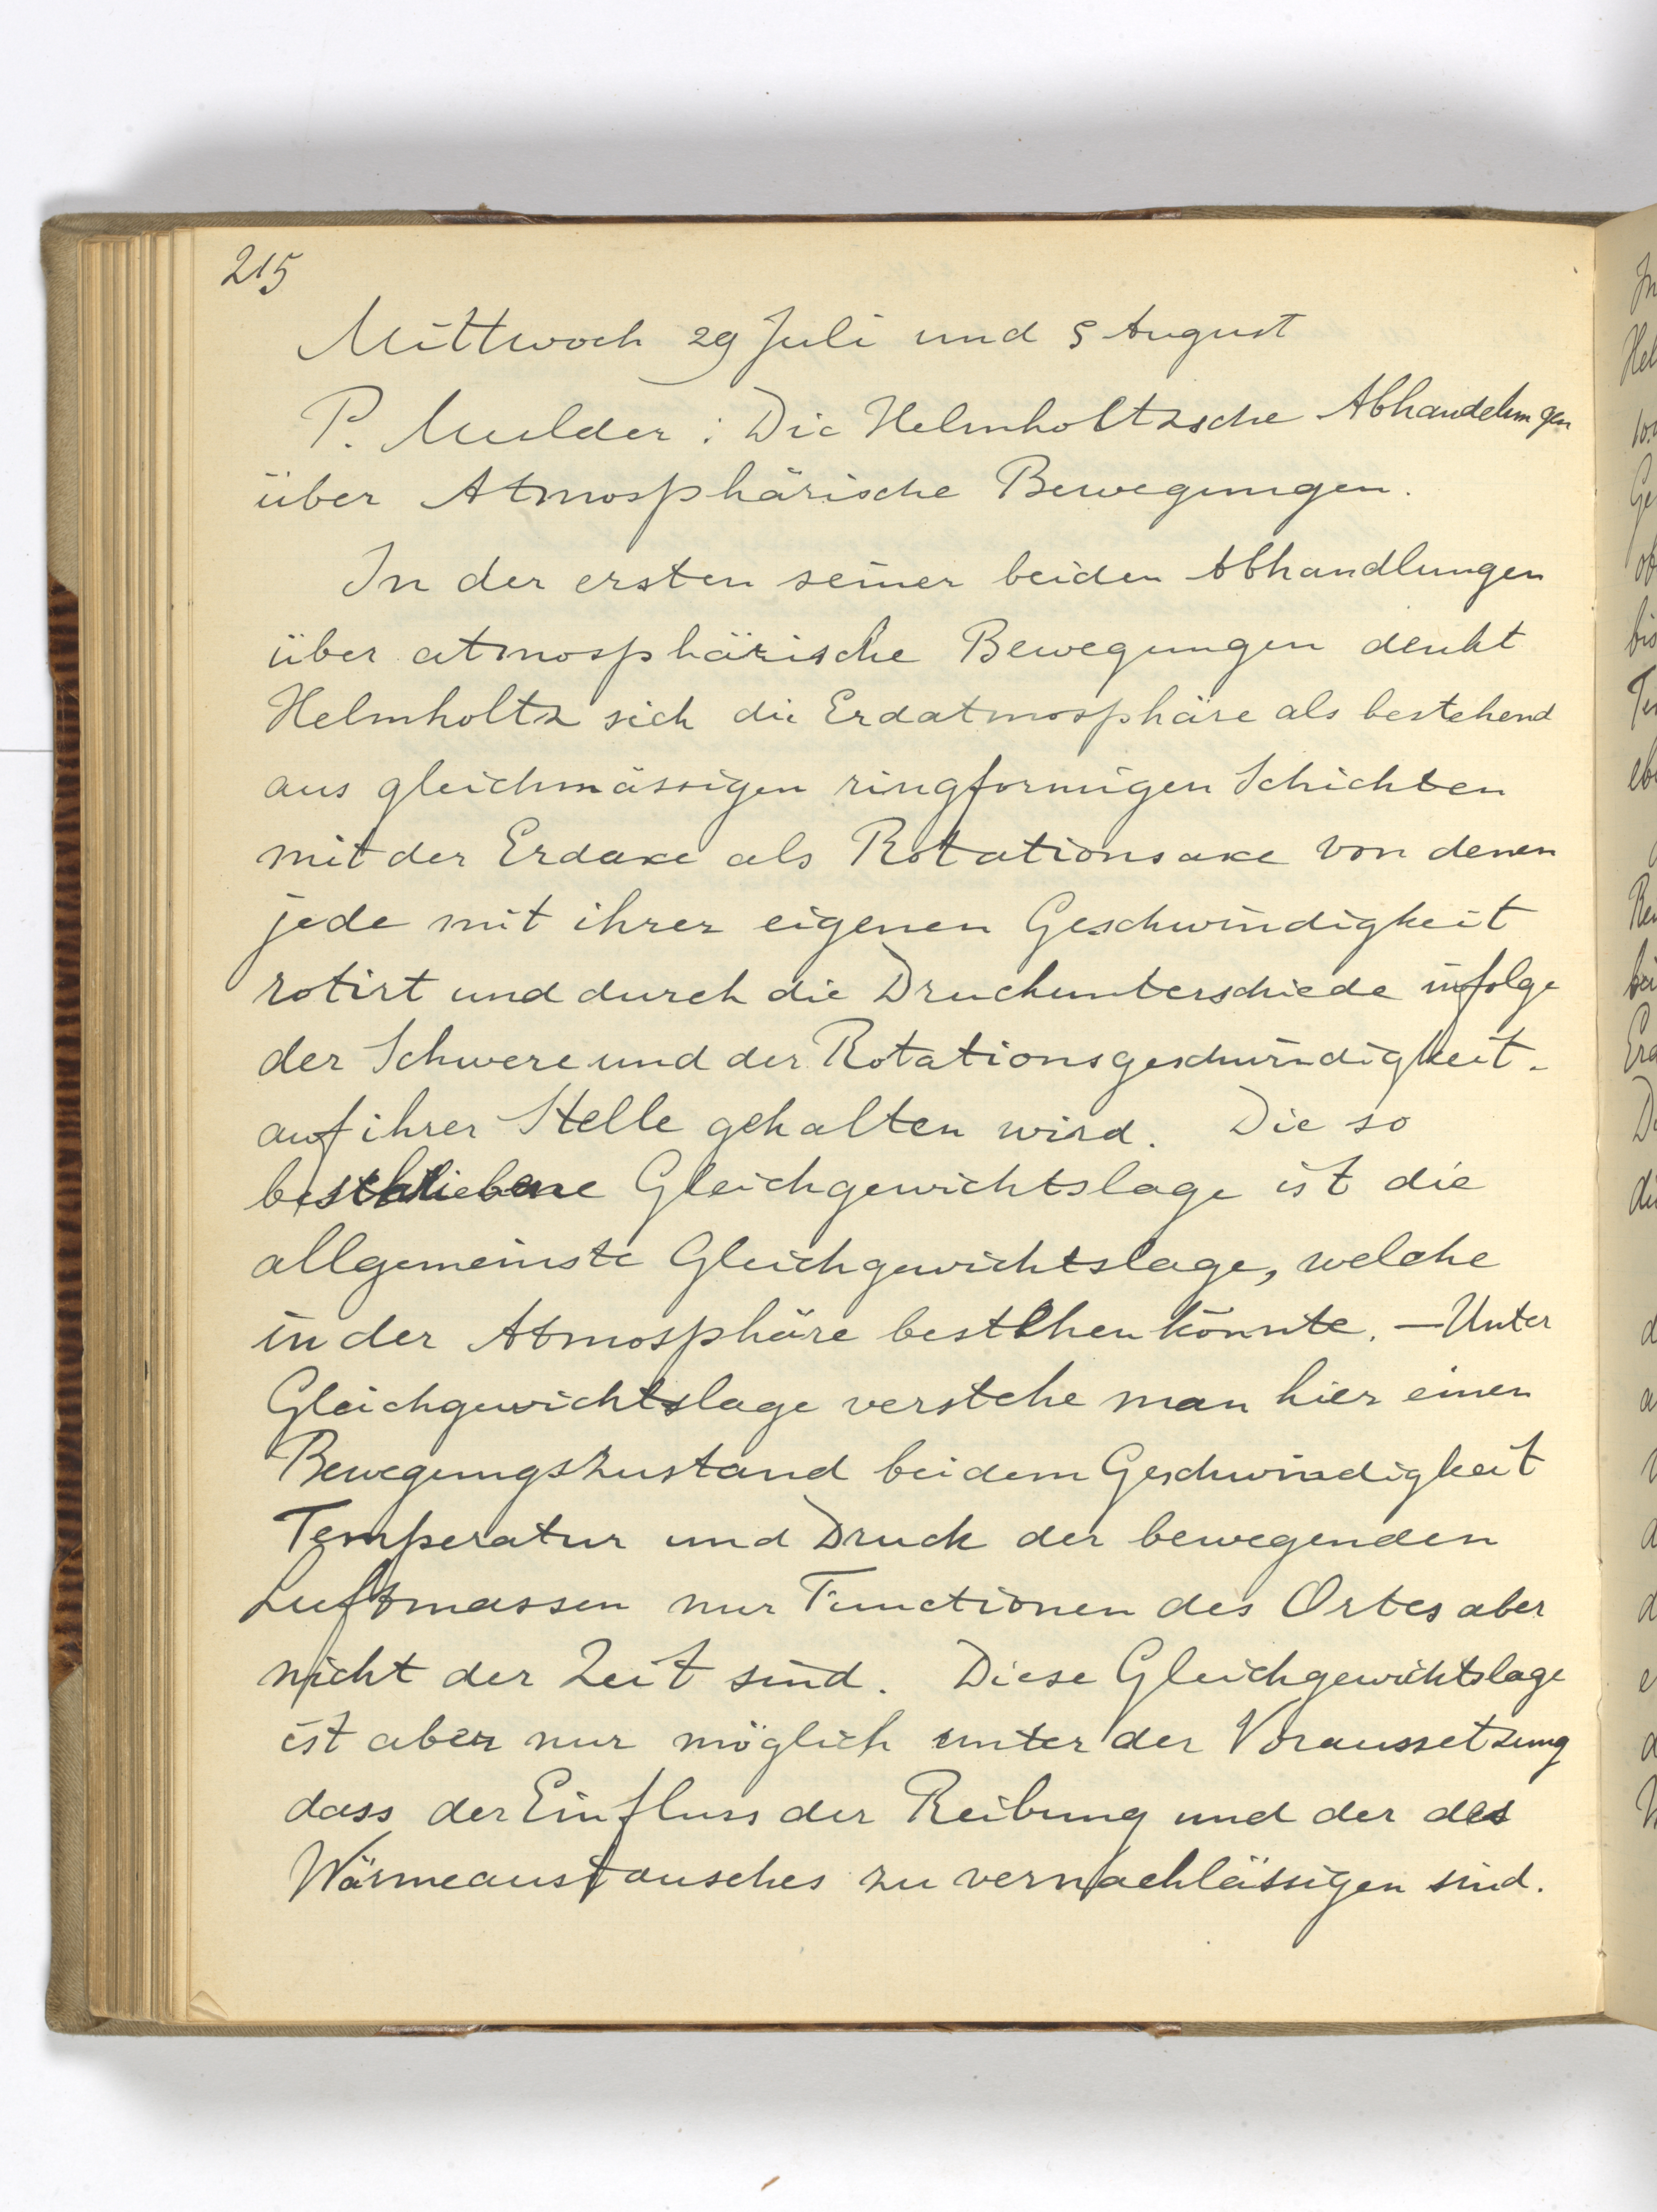 215
Mittwoch 29 Juli und 5 August
P. Mulder : Die Helmholtzsche Abhandelungen
über Atmosphärische Bewegungen.
In der ersten seiner beiden Abhandlungen
über atmosphärische Bewegungen denkt
Helmholtz sich die Erdatmosphäre als bestehend
aus gleichmässigen ringformigen Schichten
mit der Erdaxe als Rotationsaxe von denen
jede mit ihrer eigenen Geschwindigkeit
rotirt und durch die Druckunterschiede infolge
der Schwere und der Rotationsgeschwindigkeit
auf ihrer Stelle gehalten wird. Die so
beschriebene Gleichgewichtslage ist die
allgemeinste Gleichgewichtslage, welche
in der Atmosphäre bestehen könnte. — Unter
Gleichgewichtslage verstehe man hier einen
Bewegungszustand bei dem Geschwindigkeit
Temperatur und Druck der bewegenden
Luftmassen nur Functionen des Ortes aber
nicht der Zeit sind. Diese Gleichgewichtslage
ist aber nur möglich unter der Voraussetzung
dass der Einfluss der Reibung und der des
Wärmeaustausches zu vernachlässigen sind.